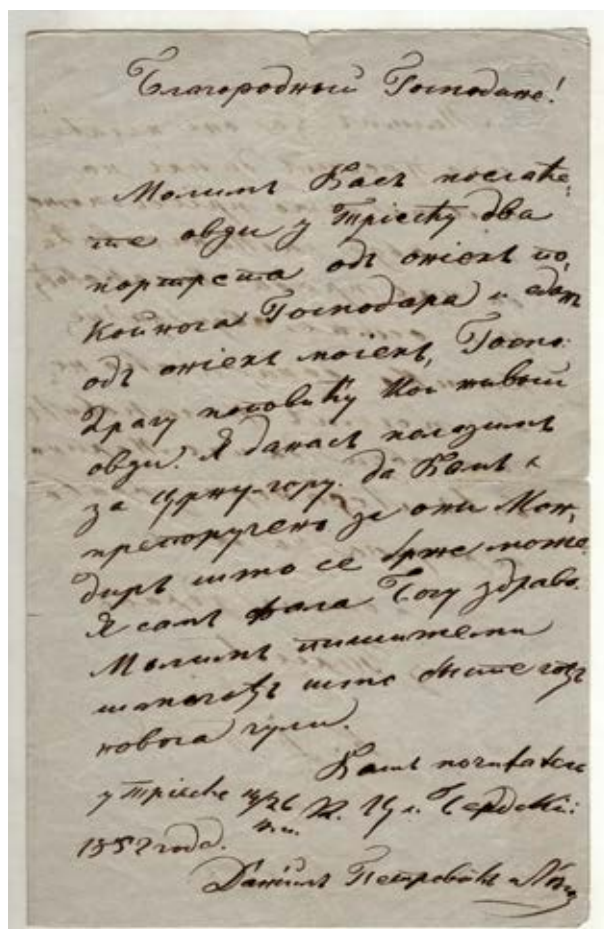 Благородный Господине!
Молимъ Васъ послаће
те овди у Тріесту два
портрета одъ онiехъ по
койнога Господара и едан
одъ онiехъ моiехъ, Госпо
драгу поповићу кои живой
овди. Я данасъ полазимъ
за Црну-гору. да Вамъ є
препоручено за они Мон
диръ што се брже може.
Я самъ фала Богу здраво.
Молимъ пишитеми
што
новога чули.
Вашъ почитатель
у Тріесте К. Ц. и Бердскій:
1852 года.
Даніилъ Петровићь Нѣгу